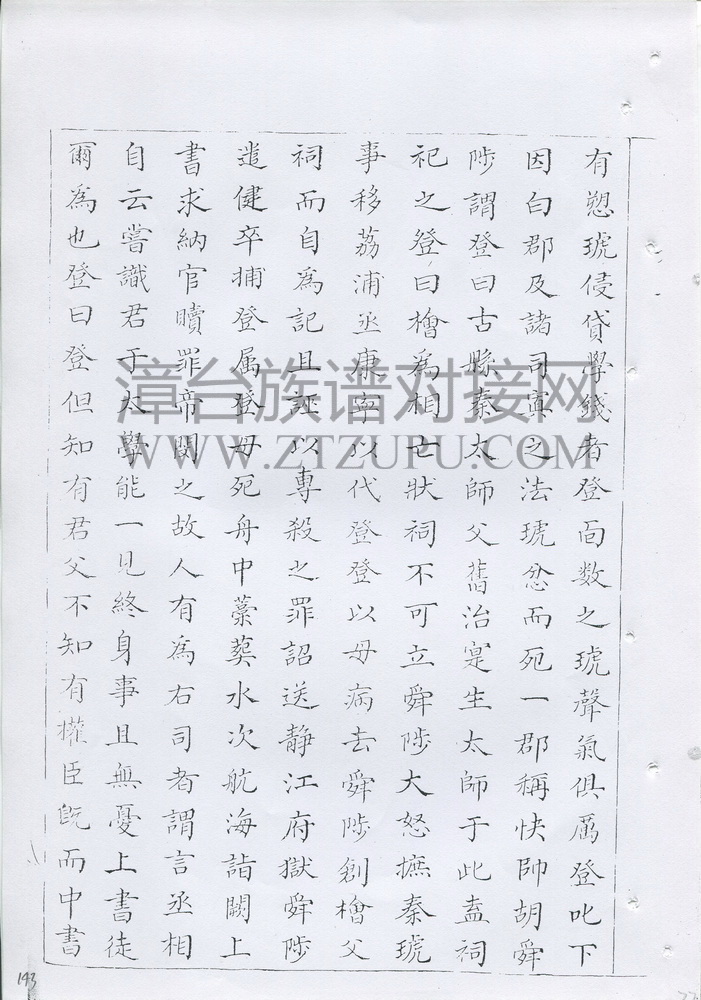 有愬琥侵貸學錢者登面数之琥聲氣俱厲登叱下
因白郡及諸司寘之法琥忿而死一郡稱快帥胡舜
陟謂登曰古縣秦太師父舊治寔生太師于此盍祠
祀之登曰檜為相亡狀祠不可立舜陟大怒摭秦琥
事移荔浦丞康寧以代登登以母病去舜陟創檜父
祠而自為記且誣以專殺之罪詔送静江府獄舜陟
遣健卒捕登属登母死舟中藁葬水次航海詣闕上
書求納官贖罪帝閔之故人有為右司者謂言丞相
自云嘗識君于太學能一見終身事且無憂上書徒
爾為也登曰登但知有君父不知有權臣既而中書
漳台族谱对接网
WWW.ZTZUPU.COM
143